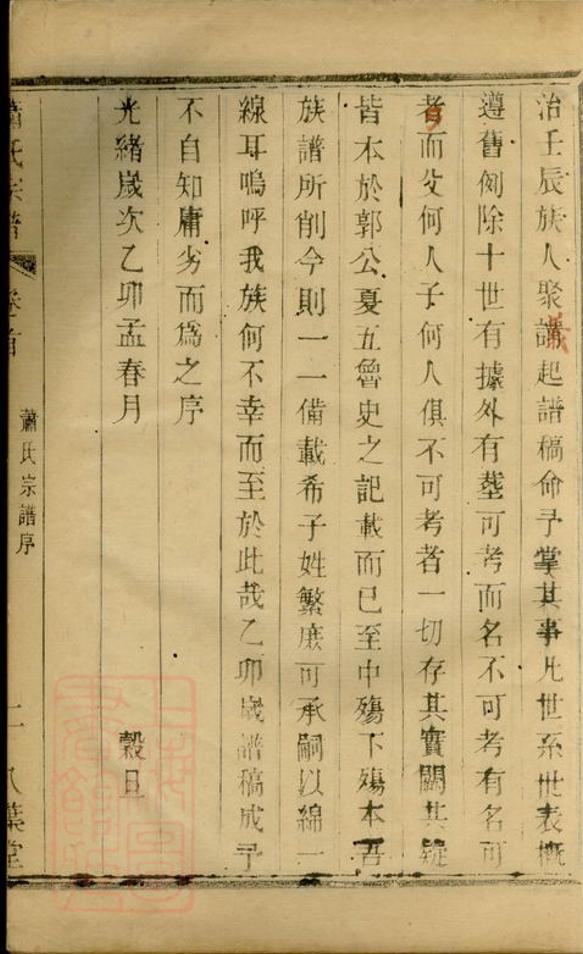 治壬辰族人聚議起譜稿命予掌其事凡世系世表概
遵舊例除十世有據外有塟可考而名不可考有名可
考而父何人子何人俱不可考者一切存其實闕其疑
皆本於郭公夏五魯史之記載而已至中殤下殤本吾
族譜所削今則一一備載希子姓繁庶可承嗣以綿一
線耳嗚呼我族何不幸而至於此哉乙卯歲譜稿成予
不自知庸劣而爲之序
光緒歲次乙卯孟春月 穀旦
蕭氏宗譜 卷首 蕭氏宗譜序 二 八葉堂